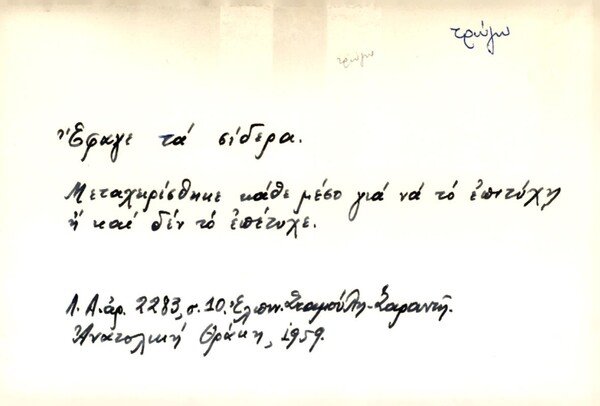 τρώγω
τρώγω
Ἔφαγε τά σίδερα.
Μεταχειρίσθηκε κάθε μέσο γιά νά τό ἐπιτύχη
ἤ καί δέν τό ἐπέτυχε.
Λ. Α. ἀρ. 2283, σ. 10. Ἐλπιν. Σταμούλη-Σαραντῆ.
Ἀνατολική Θράκη, 1959.